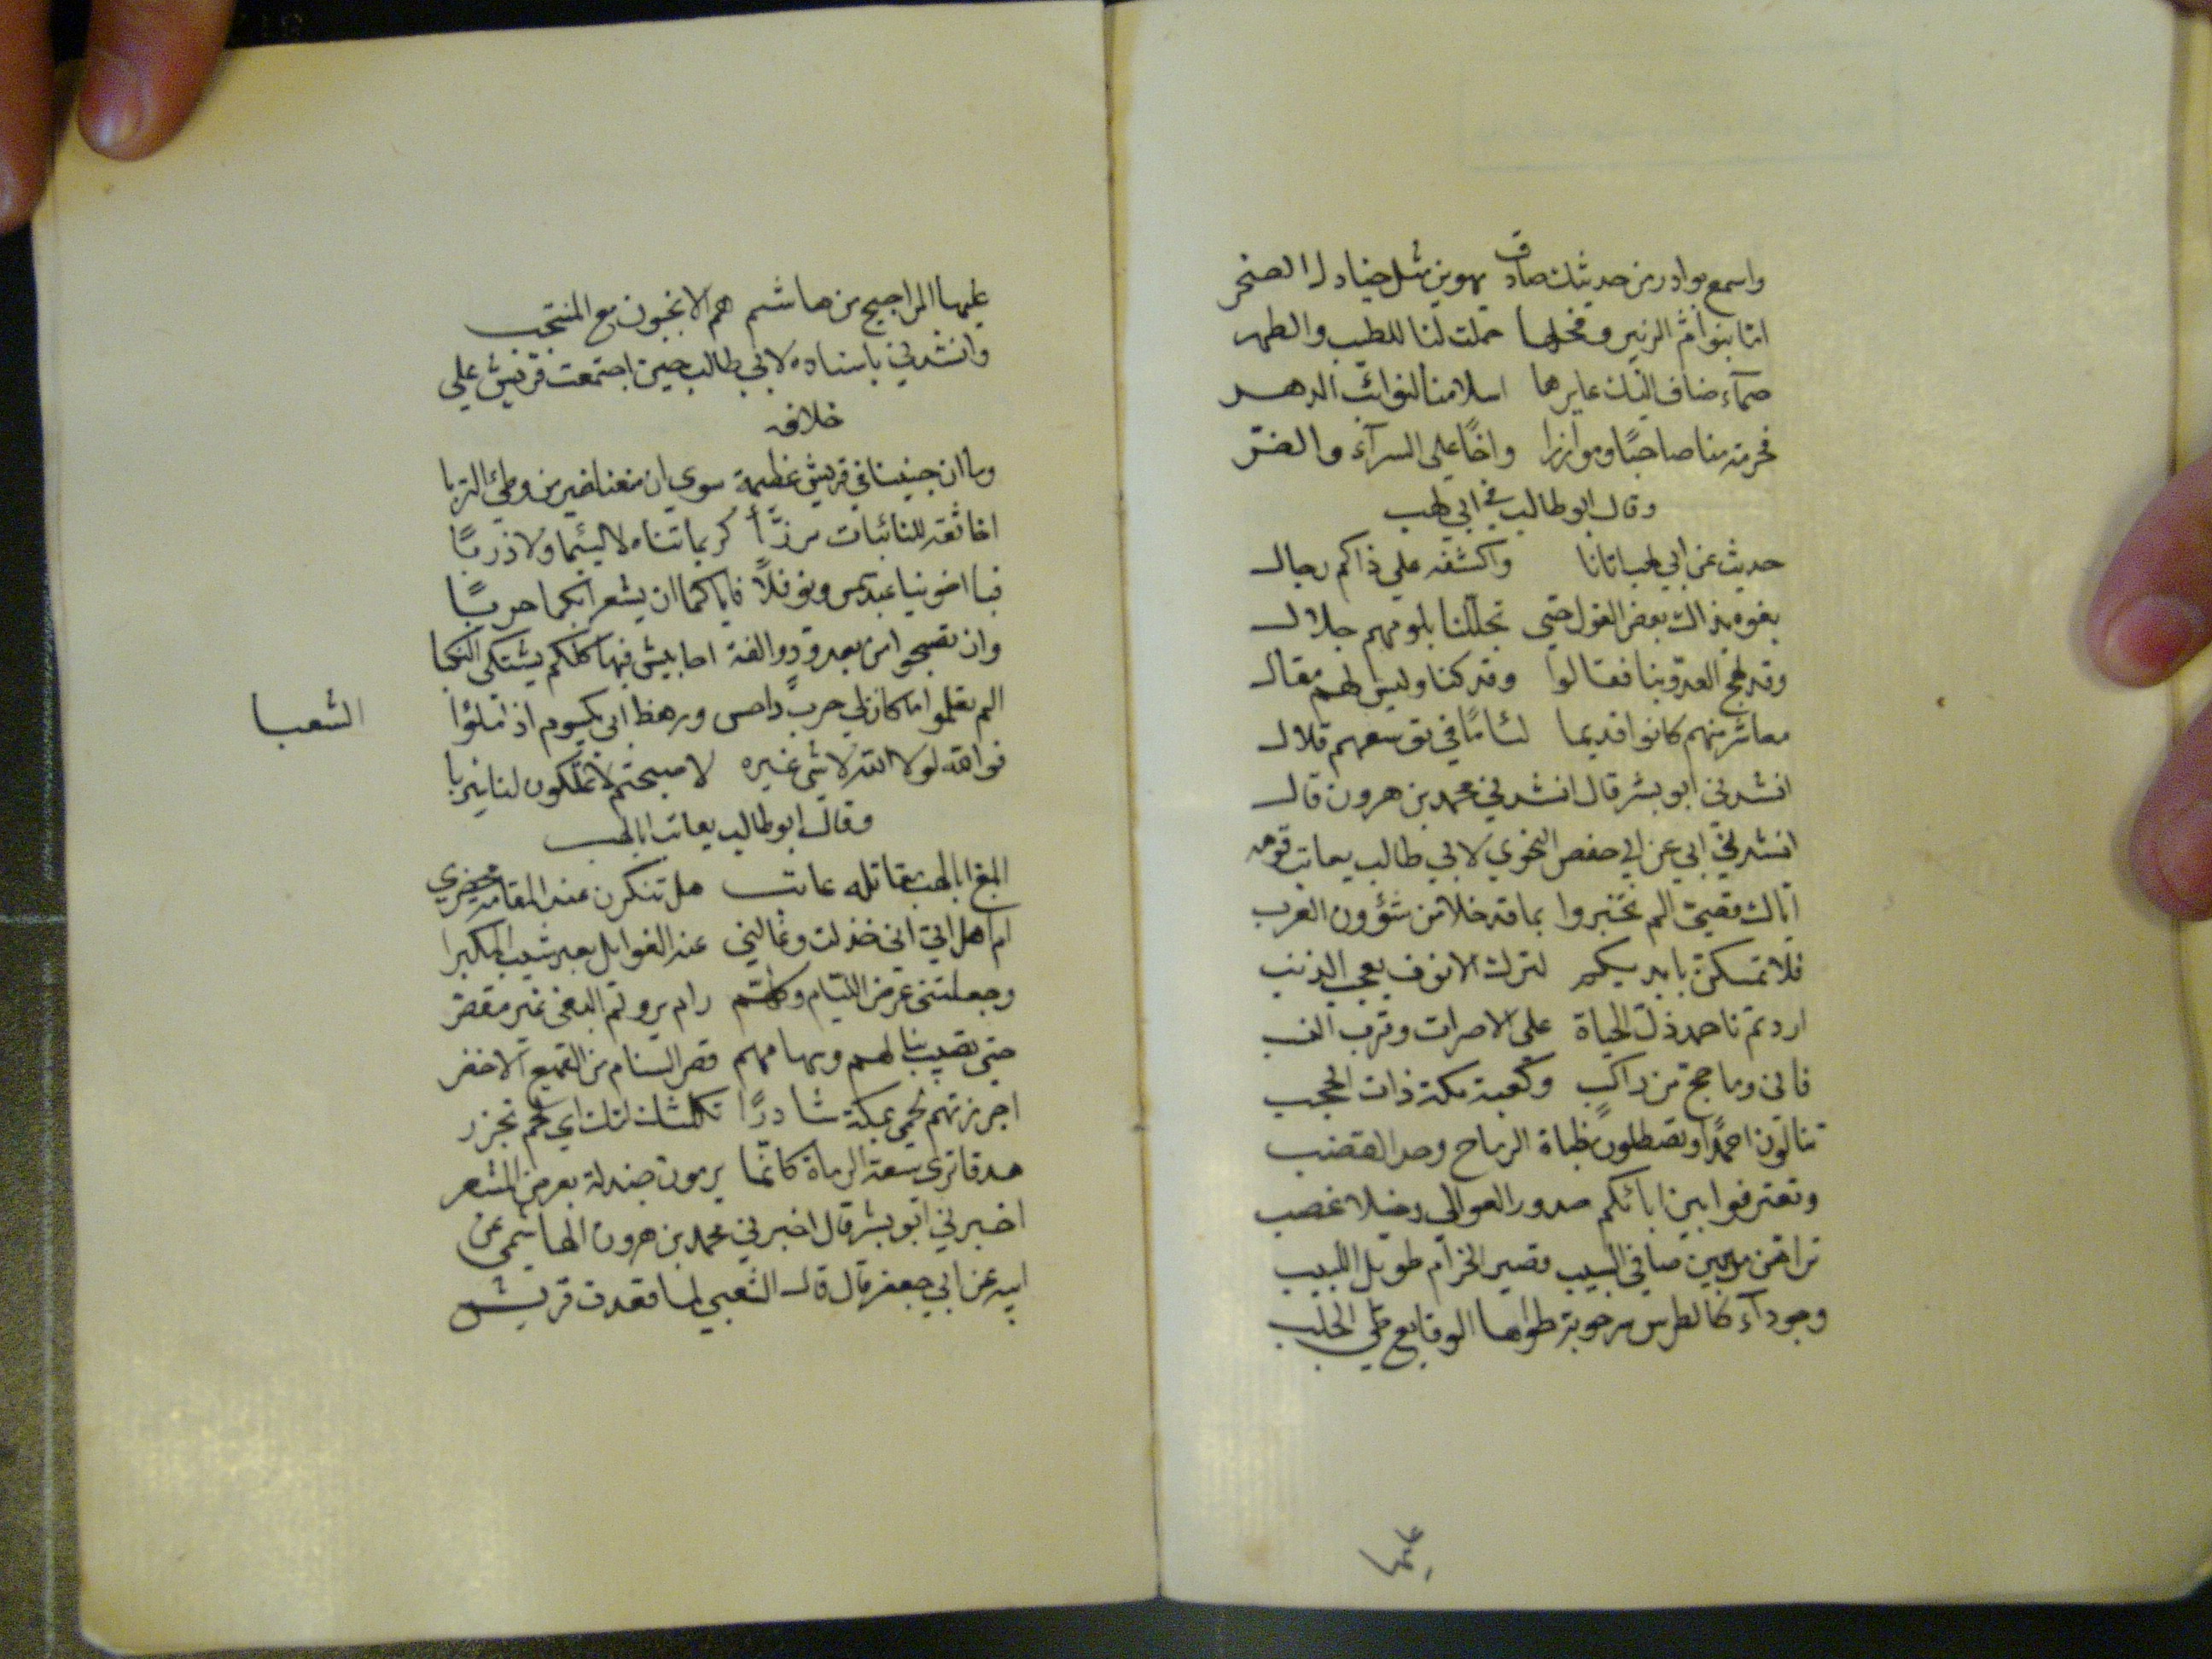 واسمع بوادر من حديثك صادق يهوين مثل جنادل الصخر
انا بنو أم الزبير وفحلها حملت لنا للطيب والطهر
صماء ضاف اليك عايرها اسلامنا لنوائب الدهــر
فحرمته منا صاحبًا وموازرا واخًا على السرآء والضرّ
وقال ابو طالب في ابي لهب
حديث عن ابي لهب اتانا واكنفه على ذاكم رجال
يفوه بذاك بعض القول حتى تجللنا بلومهم جلال
وقد لهج العدو بنا فقالوا وقد كنا وليس لهم مقال
معاشر منهم كانوا قديما لئامًا في توسعهم قلال
انشدني ابو بشر قال انشدني محمد بن هرون قال
انشدني ابي عن ابي حفص النحوي لابي طالب يعاتب قومه
اياك قصيّ الم تخبروا بما قد خلا من شؤون العرب
فلا تمسكنّ بايديكم لترك الانوف بعجب الذنب
اردتم ناحمد ذل الحياة على الاصرات وقرب النسب
فاني وما حج من راكب وكعبة مكة ذات الحجب
تنالون احمدًا وتصطلون ظباة الرماح وحد القضب
وتعترفوا بين ابائكم صدور العوالي وخيلا عصب
تراهن من بين صافي السبيب قصير الحزام طويل اللبب
وجردآء كالطرس سرحوبة طواها الوقايع طي الحلب
عليها
عليها المراجيح من هاشم هم الانجبون مع المنتجب
وانشدني باسناده لابي طالب حين اجتمعت قريش علي
خلافه
وما ان جنينا في قريش عظيمة سوى ان منعنا خير من وطئ التربا
اخا ثقة للنائبات مرزّأ كريما ثناه لا ليئما ولا ذربًا
فيا اخوينا عبد شمس ونوفلاً فاياكما ان يشعرا بكما حربًا
وان تصبحوا من بعد ود والفة احابيش فيها كلكم يشتكى النكبا
الم تعلموا ما كان في حرب داحس ورهط ابي يكسوم اذ ملؤا
الشعبا
فوالله لولا الله لا شي غيره لاصبحتم لا تملكون لنا سربا
وقال ابو طالب يعاتب ابا لهب
ابلغ ابا لهب مقاتله عاتب هل تنكرن عند المقامة محضري
ام هل اتي اني خذلت وغالني عند الغوايل بعد شيب المكبرا
وجعلتني غرض اللئام وكلهم رام يروم البغي غير مقصر
حتى تصيب لهم وبهامهم قصر السنام من القميع الاخضر
اجزرتهم لحمي بمكة شادرًا ثكلتك امك اي لحم تجزر
هدفا ترى سعة الرماة كانّما يرمون جندلة بعرض المشعر
اخبرني ابو بشر قال اخبرني محمد بن هرون الهاشمي عن
ابيه عن ابي جعفر قال قال الشعبي لما فقدت قريش